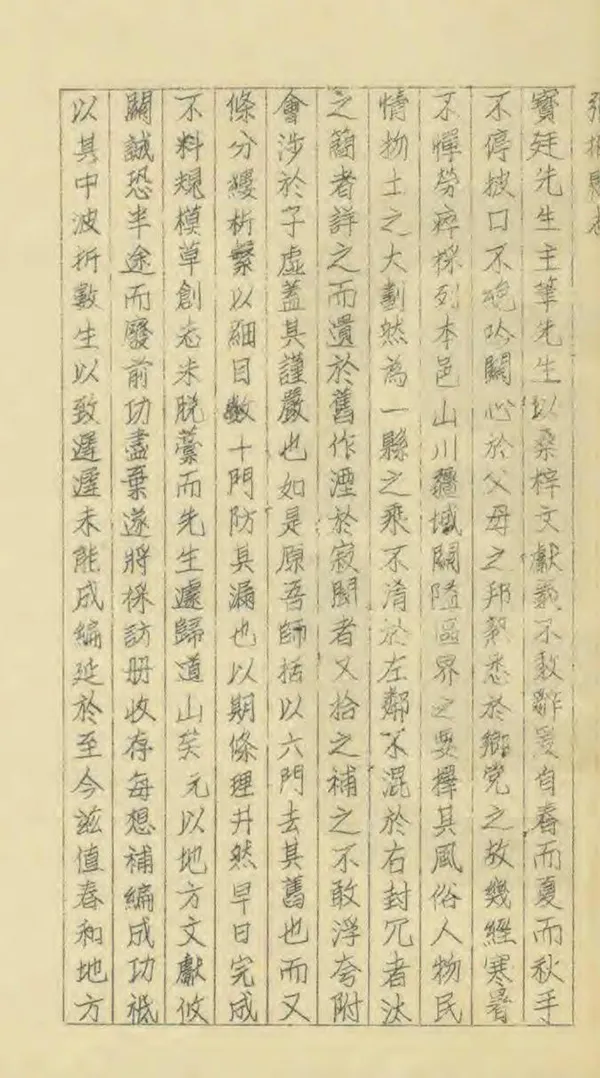 寶廷先生主筆先生以桑梓文獻義不敢辭爰自春而夏而秋手
不停披口不絕吟關心於父母之邦熟悉於鄉党之故幾經寒暑
不憚勞瘁採列本邑山川疆域關隘區界之要擇其風俗人物民
情物土之大劃然為一縣之乘不淆於左鄰不混於右封冗者汰
之簡者詳之而遺於舊作湮於寂聞者又拾之補之不敢浮夸附
會涉於子虛蓋其謹嚴也如是原吾師括以六門去其舊也而又
條分縷析繫以細目數十門防其漏也以期條理井然早日完成
不料規模草創志未脫藁而先生遽歸道山矣元以地方文獻攸
關誠恐半途而廢前功盡棄遂將採訪册收存每想補編成功祗
以其中波折數生以致遲遲未能成編延於至今兹值春和地方